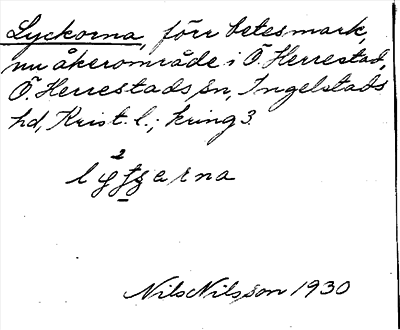 Lyckorna, förr betesmark,
nu åkerområde i Ö. Herrestad,
Ö. Herrestads sn, Ingelstads
hd, Krist. l.; kring 3.
Nils Nilsson 1930